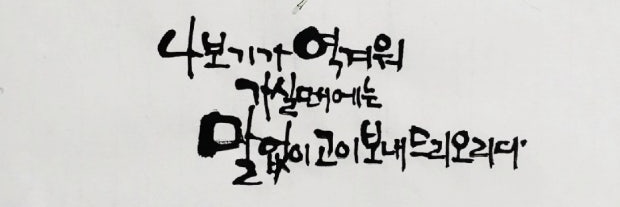 나보기가 역겨워
가실때에는
말없이고이보내드리오리다.